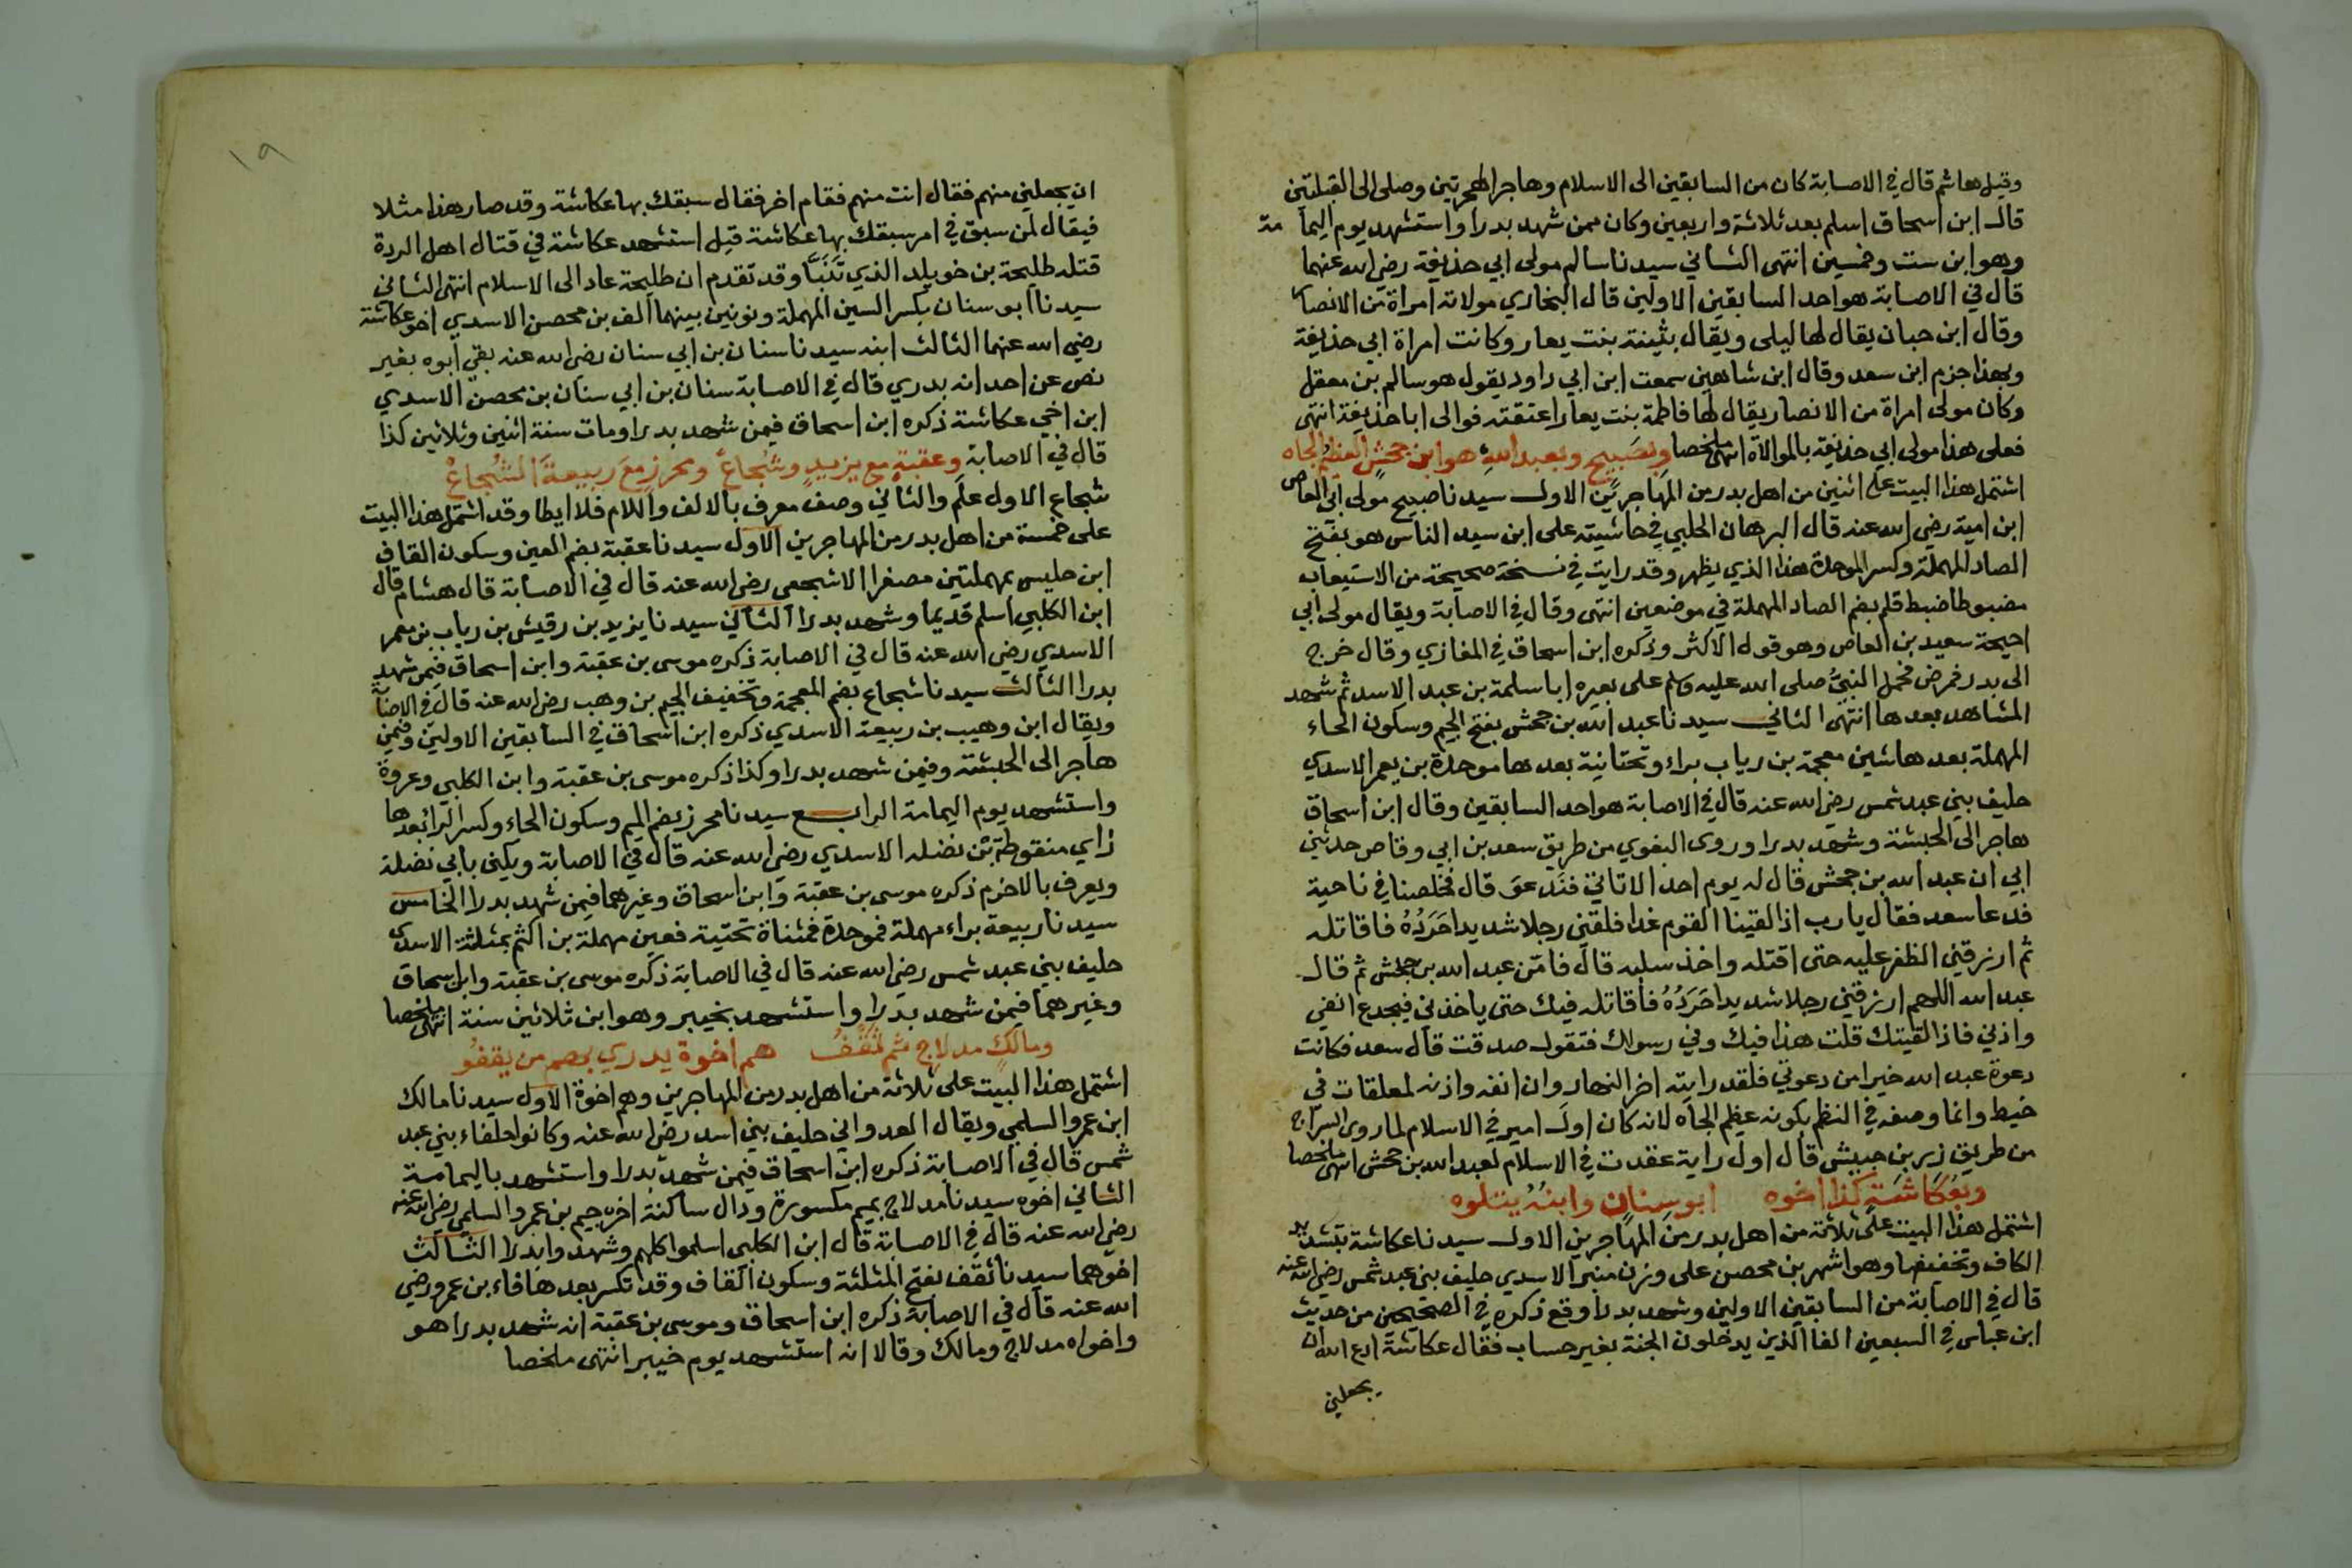 وقيل هاشم قال في الاصابة كان من السابقين الى الاسلام وهاجر الهجرتين وصلى الى القبلتين
قال ابن اسحاق اسلم بعد ثلاثة واربعين وكان ممن شهد بدرا واستشهد يوم اليمامة
وهو ابن ست وخمسين انتهى الثاني سيدنا سالم مولى ابي حذيفة رضي الله عنهما
قال في الاصابة هو احد السابقين الاولين قال البخاري مولاته امراة من الانصار
وقال ابن حبان يقال لها ليلى ويقال بثينة بنت يعار وكانت امراة ابي حذيفة
وبهذا جزم ابن سعد وقال ابن شاهين سمعت ابن ابي داود يقول هو سالم بن معقل
وكان مولى امراة من الانصار يقال لها فاطمة بنت يعار اعتقته فوالى ابا حذيفة انتهى
فعلى هذا مولى ابي حذيفة بالموالاة انتهى ملخصا وبصَبيح وبعبد اللهِ هو ابن جحشٍ العظيمُ الجاه
اشتمل هذا البيت على اثنين من اهل بدر من المهاجرين الاول سيدنا صبيح مولى ابي العاص
ابن امية رضي الله عنه قال البرهان الحلبي في حاشيته على ابن سيد الناس هو بفتح
الصاد المهملة وكسر الموحدة هذا الذي يظهر وقد رايت في نسخة صحيحة من الاستيعاب
مضبوطا ضبط قلم بضم الصاد المهملة في موضعين انتهى وقال في الاصابة ويقال مولى ابي
احيحة سعيد بن العاص وهو قول الاكثر وذكره ابن اسحاق في المغازي وقال خرج
الى بدر فمرض فحمل النبيُّ صلى الله عليه وسلم على بعيره ابا سلمة بن عبد الاسد ثم شهد
المشاهد بعدها انتهى الثاني سيدنا عبد الله بن جحش بفتح الجيم وسكون الحاء
المهملة بعدها شين معجمة بن رياب براء وتحتانية بعدها موحدة بن يعمر الاسدي
حليف بني عبد شمس رضي الله عنه قال في الاصابة هو احد السابقين وقال ابن اسحاق
هاجر الى الحبشة وشهد بدرا وروى البغوي من طريق سعد بن ابي وقاص حدثني
ابي ان عبد الله بن جحش قال له يوم احد الا تاتي فندعو قال فخلصنا في ناحية
فدعا سعد فقال يا رب اذا لقينا القوم غدا فلقني رجلا شديدا حَرَدُهُ فاقاتله
ثم ارزقني الظفر عليه حتى اقتله واخذ سلبه قال فامّن عبد الله بن جحش ثم قال
عبد الله اللهم ارزقني رجلا شديدا حَرَدُهُ فاقاتله فيك حتى ياخذني فيجدع انفي
واذني فاذا لقيتك قلت هذا فيك وفي رسولك فتقول صدقت قال سعد فكانت
دعوة عبد الله خيرا من دعوتي فلقد رايته اخر النهار وان انفه واذنه لمعلقات في
خيط وانما وصفه في النظم بكونه عظيم الجاه لانه كان اول امير في الاسلام لما روى السراج
من طريق زر بن حبيش قال اول راية عقدت في الاسلام لعبد الله بن جحش انتهى ملخصا
وبعُكاشَةٍ كذا اخوه ابو سِنانٍ وابنُهُ يتلوه
اشتمل هذا البيت على ثلاثة من اهل بدر من المهاجرين الاول سيدنا عكاشة بتشديد
الكاف وتخفيفها وهو اشهر بن محصن على وزن منبر الاسدي حليف بني عبد شمس رضي الله عنه
قال في الاصابة من السابقين الاولين وشهد بدرا وقع ذكره في الصحيحين من حديث
ابن عباس في السبعين الفا الذين يدخلون الجنة بغير حساب فقال عكاشة ادع الله ان
يجعلني
١٩
ان يجعلني منهم فقال انت منهم فقام اخر فقال سبقك بها عكاشة وقد صار هذا مثلا
فيقال لمن سبق في امر سبقك بها عكاشة قيل استشهد عكاشة في قتال اهل الردة
قتله طليحة بن خويلد الذي تَنَبَّا وقد تقدم ان طليحة عاد الى الاسلام انتهى الثاني
سيدنا ابو سنان بكسر السين المهملة ونونين بينهما الف بن محصن الاسدي اخو عكاشة
رضي الله عنهما الثالث ابنه سيدنا سنان بن ابي سنان رضي الله عنه بقي ابوه بغير
نص عن احد انه بدري قال في الاصابة سنان بن ابي سنان بن محصن الاسدي
ابن اخي عكاشة ذكره ابن اسحاق فيمن شهد بدرا ومات سنة اثنين وثلاثين كذا
قال في الاصابة وعقبةٍ مع يزيدٍ وشُجاعْ ومحرزٍ معَ ربيعةَ الشُجاعْ
شجاع الاول علم والثاني وصف معرف بالالف واللام فلا ايطا وقد اشتمل هذا البيت
على خمسة من اهل بدر من المهاجرين الاول سيدنا عقبة بضم العين وسكون القاف
ابن حليس بمهملتين مصغرا الاشجعي رضي الله عنه قال في الاصابة قال هشام قال
ابن الكلبي اسلم قديما وشهد بدرا الثاني سيدنا يزيد بن رقيش بن رياب بن يعمر
الاسدي رضي الله عنه قال في الاصابة ذكره موسى بن عقبة وابن اسحاق فيمن شهد
بدرا الثالث سيدنا شجاع بضم المعجمة وتخفيف الجيم بن وهب رضي الله عنه قال في الاصابة
ويقال ابن وهيب بن ربيعة الاسدي ذكره ابن اسحاق في السابقين الاولين وفيمن
هاجر الى الحبشة وفيمن شهد بدرا وكذا ذكره موسى بن عقبة وابن الكلبي وعروة
واستشهد يوم اليمامة الرابع سيدنا محرز بضم الميم وسكون الحاء وكسر الرا بعدها
زاي منقوطة بن نضله الاسدي رضي الله عنه قال في الاصابة ويكنى بابي نضلة
ويعرف بالاخرم ذكره موسى بن عقبة وابن اسحاق وغيرهما فيمن شهد بدرا الخامس
سيدنا ربيعة براء مهملة فموحدة فمثناة تحتية فعين مهملة بن اكثم بمثلثة الاسدي
حليف بني عبد شمس رضي الله عنه قال في الاصابة ذكره موسى بن عقبة وابن اسحاق
وغيرهما فيمن شهد بدرا واستشهد بخيبر وهو ابن ثلاثين سنة انتهى ملخصا
ومالكٍ مدلاجِ ثم ثَقْفُ هم اخوة بدري بهم من يقفُو
اشتمل هذا البيت على ثلاثة من اهل بدر من المهاجرين وهم اخوة الاول سيدنا مالك
ابن عمرو السلمي ويقال العدواني حليف بني اسد رضي الله عنه وكانوا حلفاء بني عبد
شمس قال في الاصابة ذكره ابن اسحاق فيمن شهد بدرا واستشهد باليمامة
الثاني اخوه سيدنا مدلاج بميم مكسورة ودال ساكنة اخره جيم بن عمرو السلمي رضي الله عنه
رضي الله عنه قال في الاصابة قال ابن الكلبي اسلموا كلهم وشهدوا بدرا الثالث
اخوهما سيدنا ثقف بفتح المثلثة وسكون القاف وقد تكسر بعدها فاء بن عمرو رضي
الله عنه قال في الاصابة ذكره ابن اسحاق وموسى بن عقبة انه شهد بدرا هو
واخواه مدلاج ومالك وقالا انه استشهد يوم خيبر انتهى ملخصا